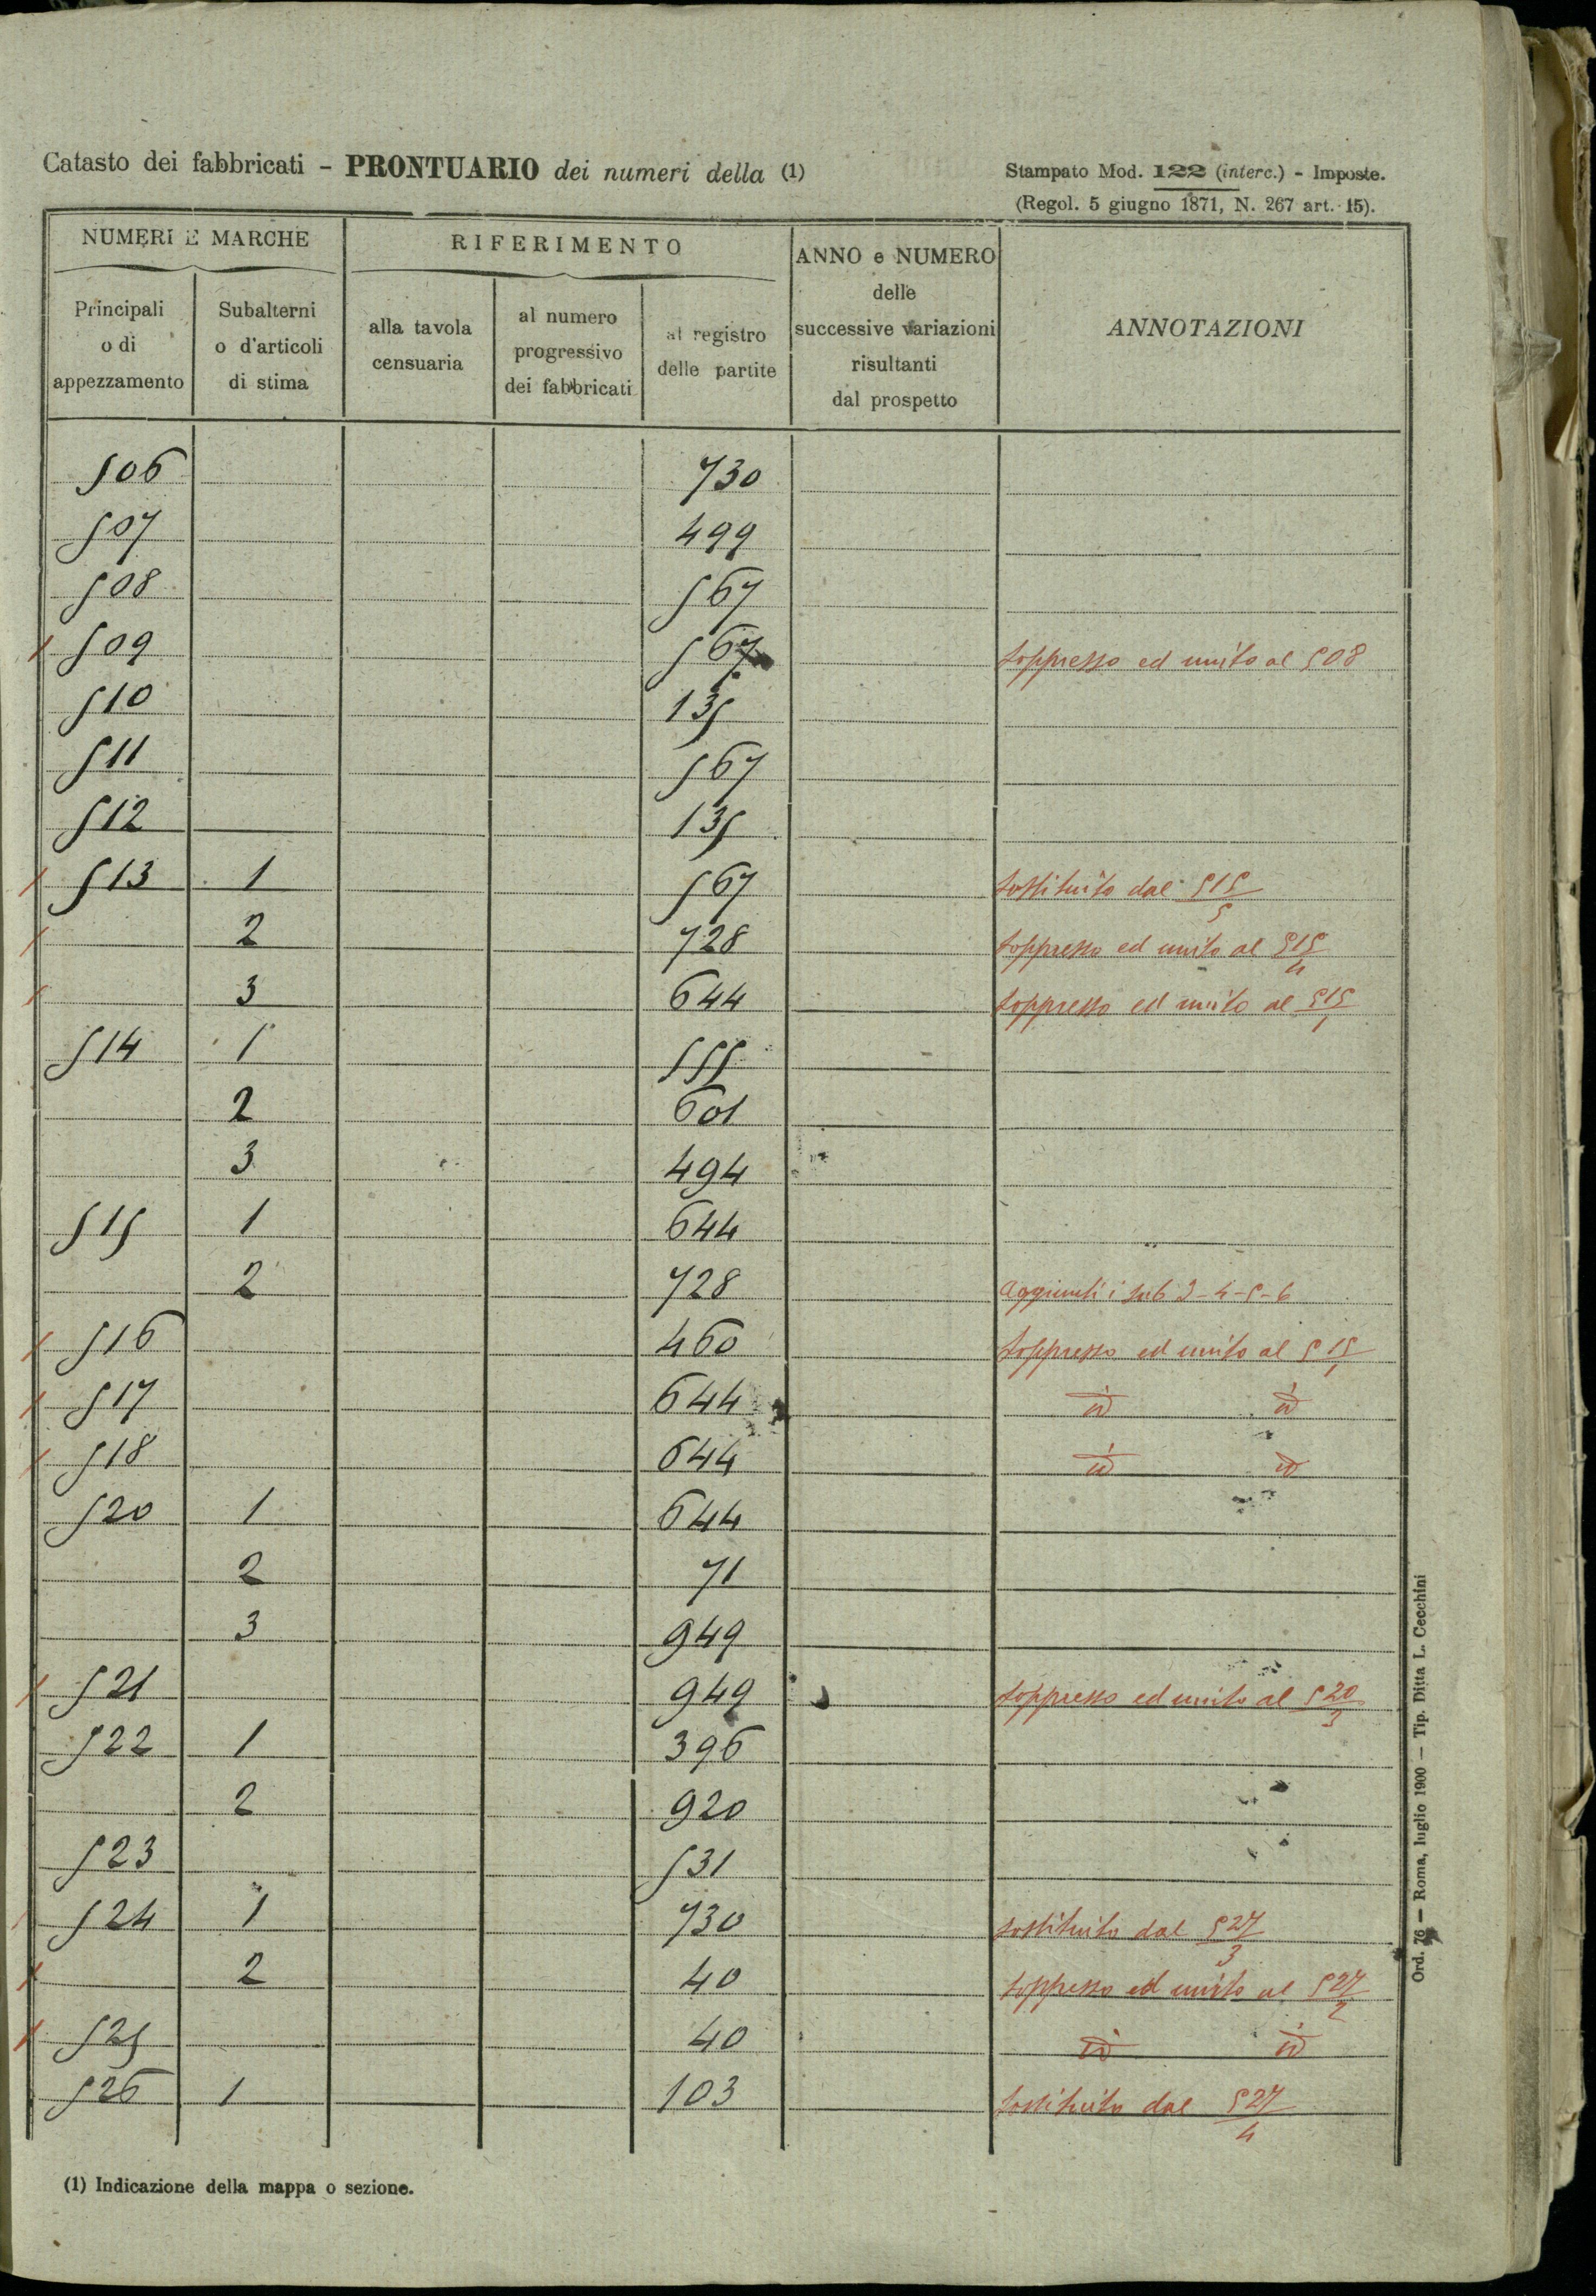 Catasto dei fabbricati - PRONTUARIO dei numeri della (1)
Stampato Mod. 122 (interc.) - Imposte.
(Regol. 5 giugno 1871, N. 267 art. 15).
NUMERI E MARCHE
RIFERIMENTO
ANNO e NUMERO
delle
successive variazioni
risultanti
dal prospetto
ANNOTAZIONI
Principali
o di
appezzamento
Subalterni
o d'articoli
di stima
alla tavola
censuaria
al numero
progressivo
dei fabbricati
al registro
delle partite
506 730
507 499
508 567
509 567 soppresso ed unito al 508
510 135
511 567
512 135
513 1 567 sostituito dal 515/5
2 728 soppresso ed unito al 515/4
3 644 soppresso ed unito al 515/1
514 1 555
2 601
3 494
515 1 644
2 728 aggiunti i sub 3-4-5-6
516 460 soppresso ed unito al 515/1
517 644 id id
518 644 id id
520 1 644
2 71
3 949
521 949 soppresso ed unito al 520/3
522 1 396
2 920
523 531
524 1 730 sostituito dal 527/3
2 40 soppresso ed unito al 527/2
525 40 id id
526 1 103 sostituito dal 527/4
(1) Indicazione della mappa o sezione.
Ord. 76 — Roma, luglio 1900 — Tip. Ditta L. Cecchini